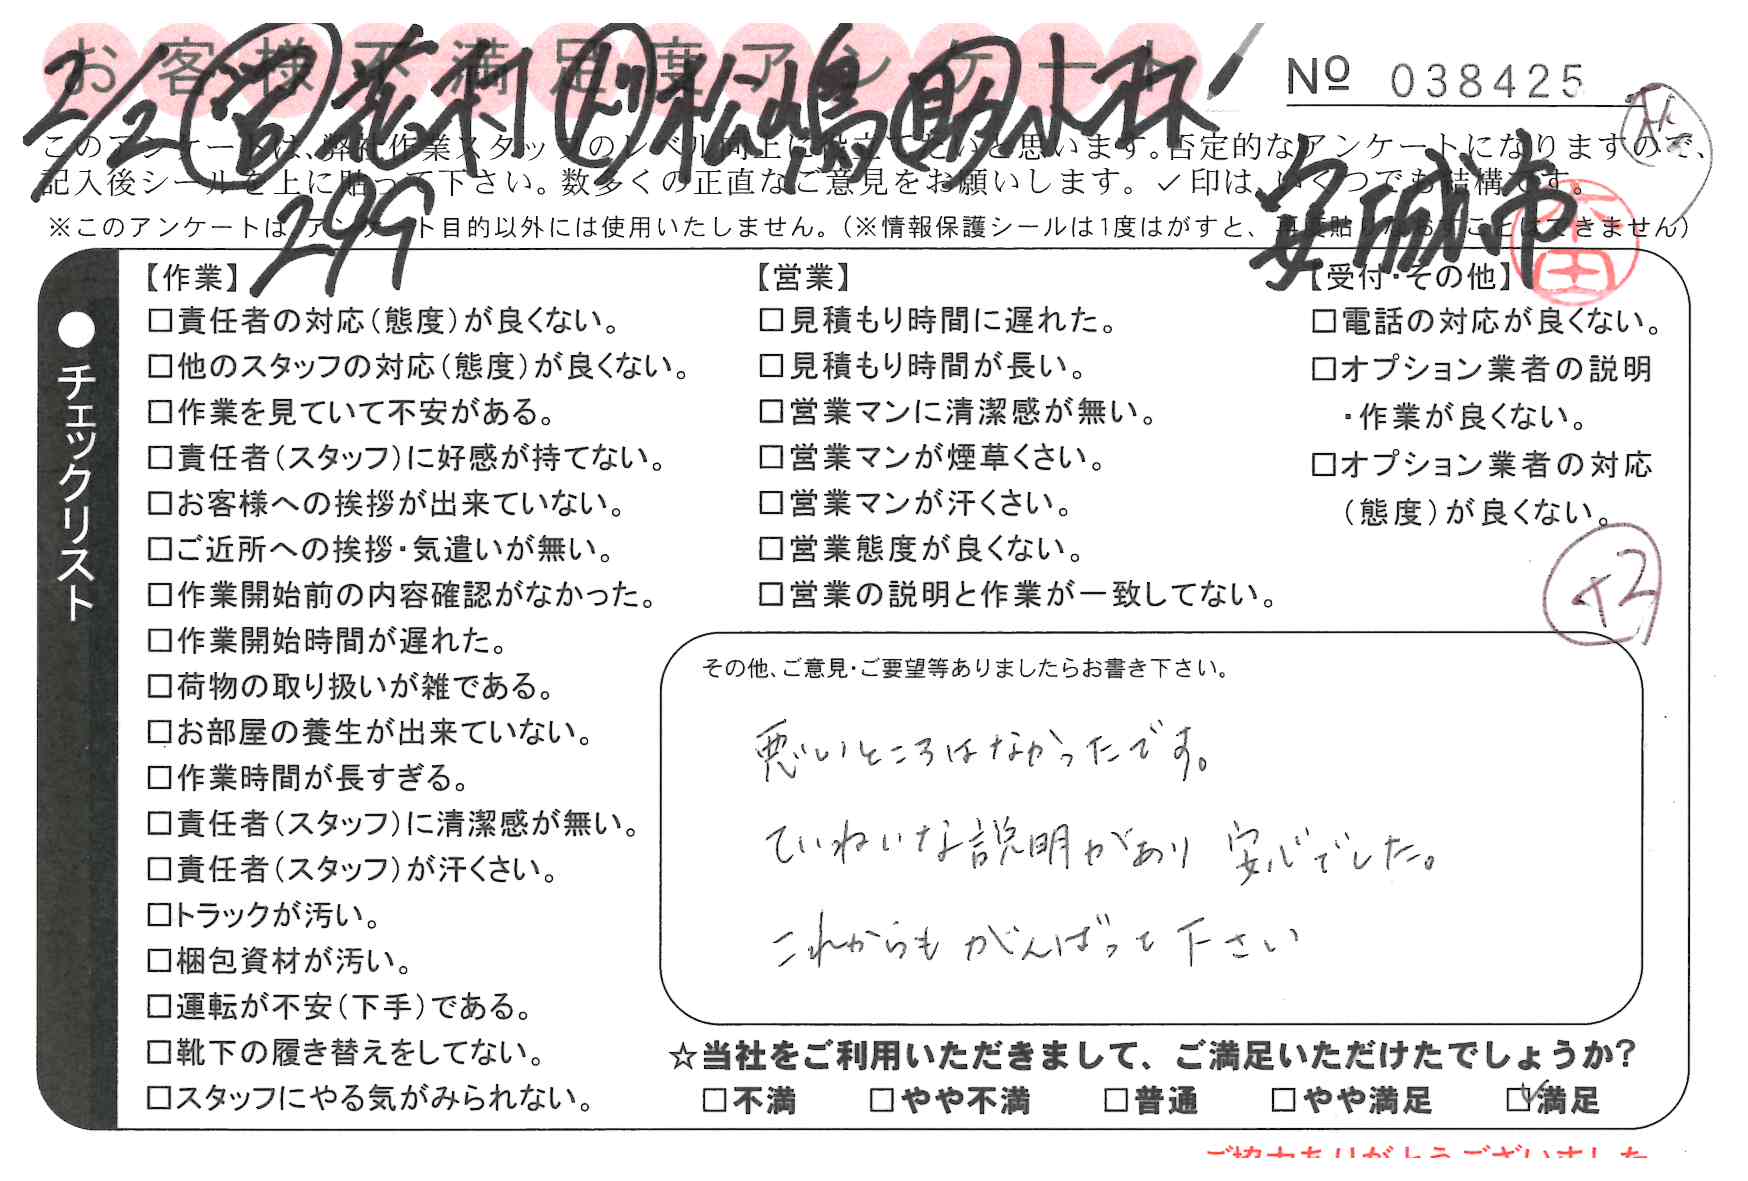 お客様不満足度アンケート
Nº 038425
2/2 営 志村 リ 松嶋 助 小林
299
安城市
このアンケートは、弊社作業スタッフのレベル向上に役立てたいと思います。否定的なアンケートになりますので、
記入後シールを上に貼って下さい。数多くの正直なご意見をお願いします。✓印は、いくつでも結構です。
※このアンケートは、アンケート目的以外には使用いたしません。(※情報保護シールは1度はがすと、再度貼りなおすことはできません)
●チェックリスト
【作業】
□責任者の対応(態度)が良くない。
□他のスタッフの対応(態度)が良くない。
□作業を見ていて不安がある。
□責任者(スタッフ)に好感が持てない。
□お客様への挨拶が出来ていない。
□ご近所への挨拶・気遣いが無い。
□作業開始前の内容確認がなかった。
□作業開始時間が遅れた。
□荷物の取り扱いが雑である。
□お部屋の養生が出来ていない。
□作業時間が長すぎる。
□責任者(スタッフ)に清潔感が無い。
□責任者(スタッフ)が汗くさい。
□トラックが汚い。
□梱包資材が汚い。
□運転が不安(下手)である。
□靴下の履き替えをしてない。
□スタッフにやる気がみられない。
【営業】
□見積もり時間に遅れた。
□見積もり時間が長い。
□営業マンに清潔感が無い。
□営業マンが煙草くさい。
□営業マンが汗くさい。
□営業態度が良くない。
□営業の説明と作業が一致してない。
【受付・その他】
□電話の対応が良くない。
□オプション業者の説明
・作業が良くない。
□オプション業者の対応
(態度)が良くない。
+2
その他、ご意見・ご要望等ありましたらお書き下さい。
悪いところはなかったです。
ていねいな説明があり 安心でした。
これからも がんばって下さい
☆当社をご利用いただきまして、ご満足いただけたでしょうか?
□不満 □やや不満 □普通 □やや満足 ☑満足
ご協力ありがとうございました